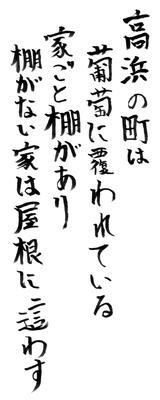 高浜の町は
葡萄に覆われている
家ごと棚があり
棚がない家は屋根に這わす